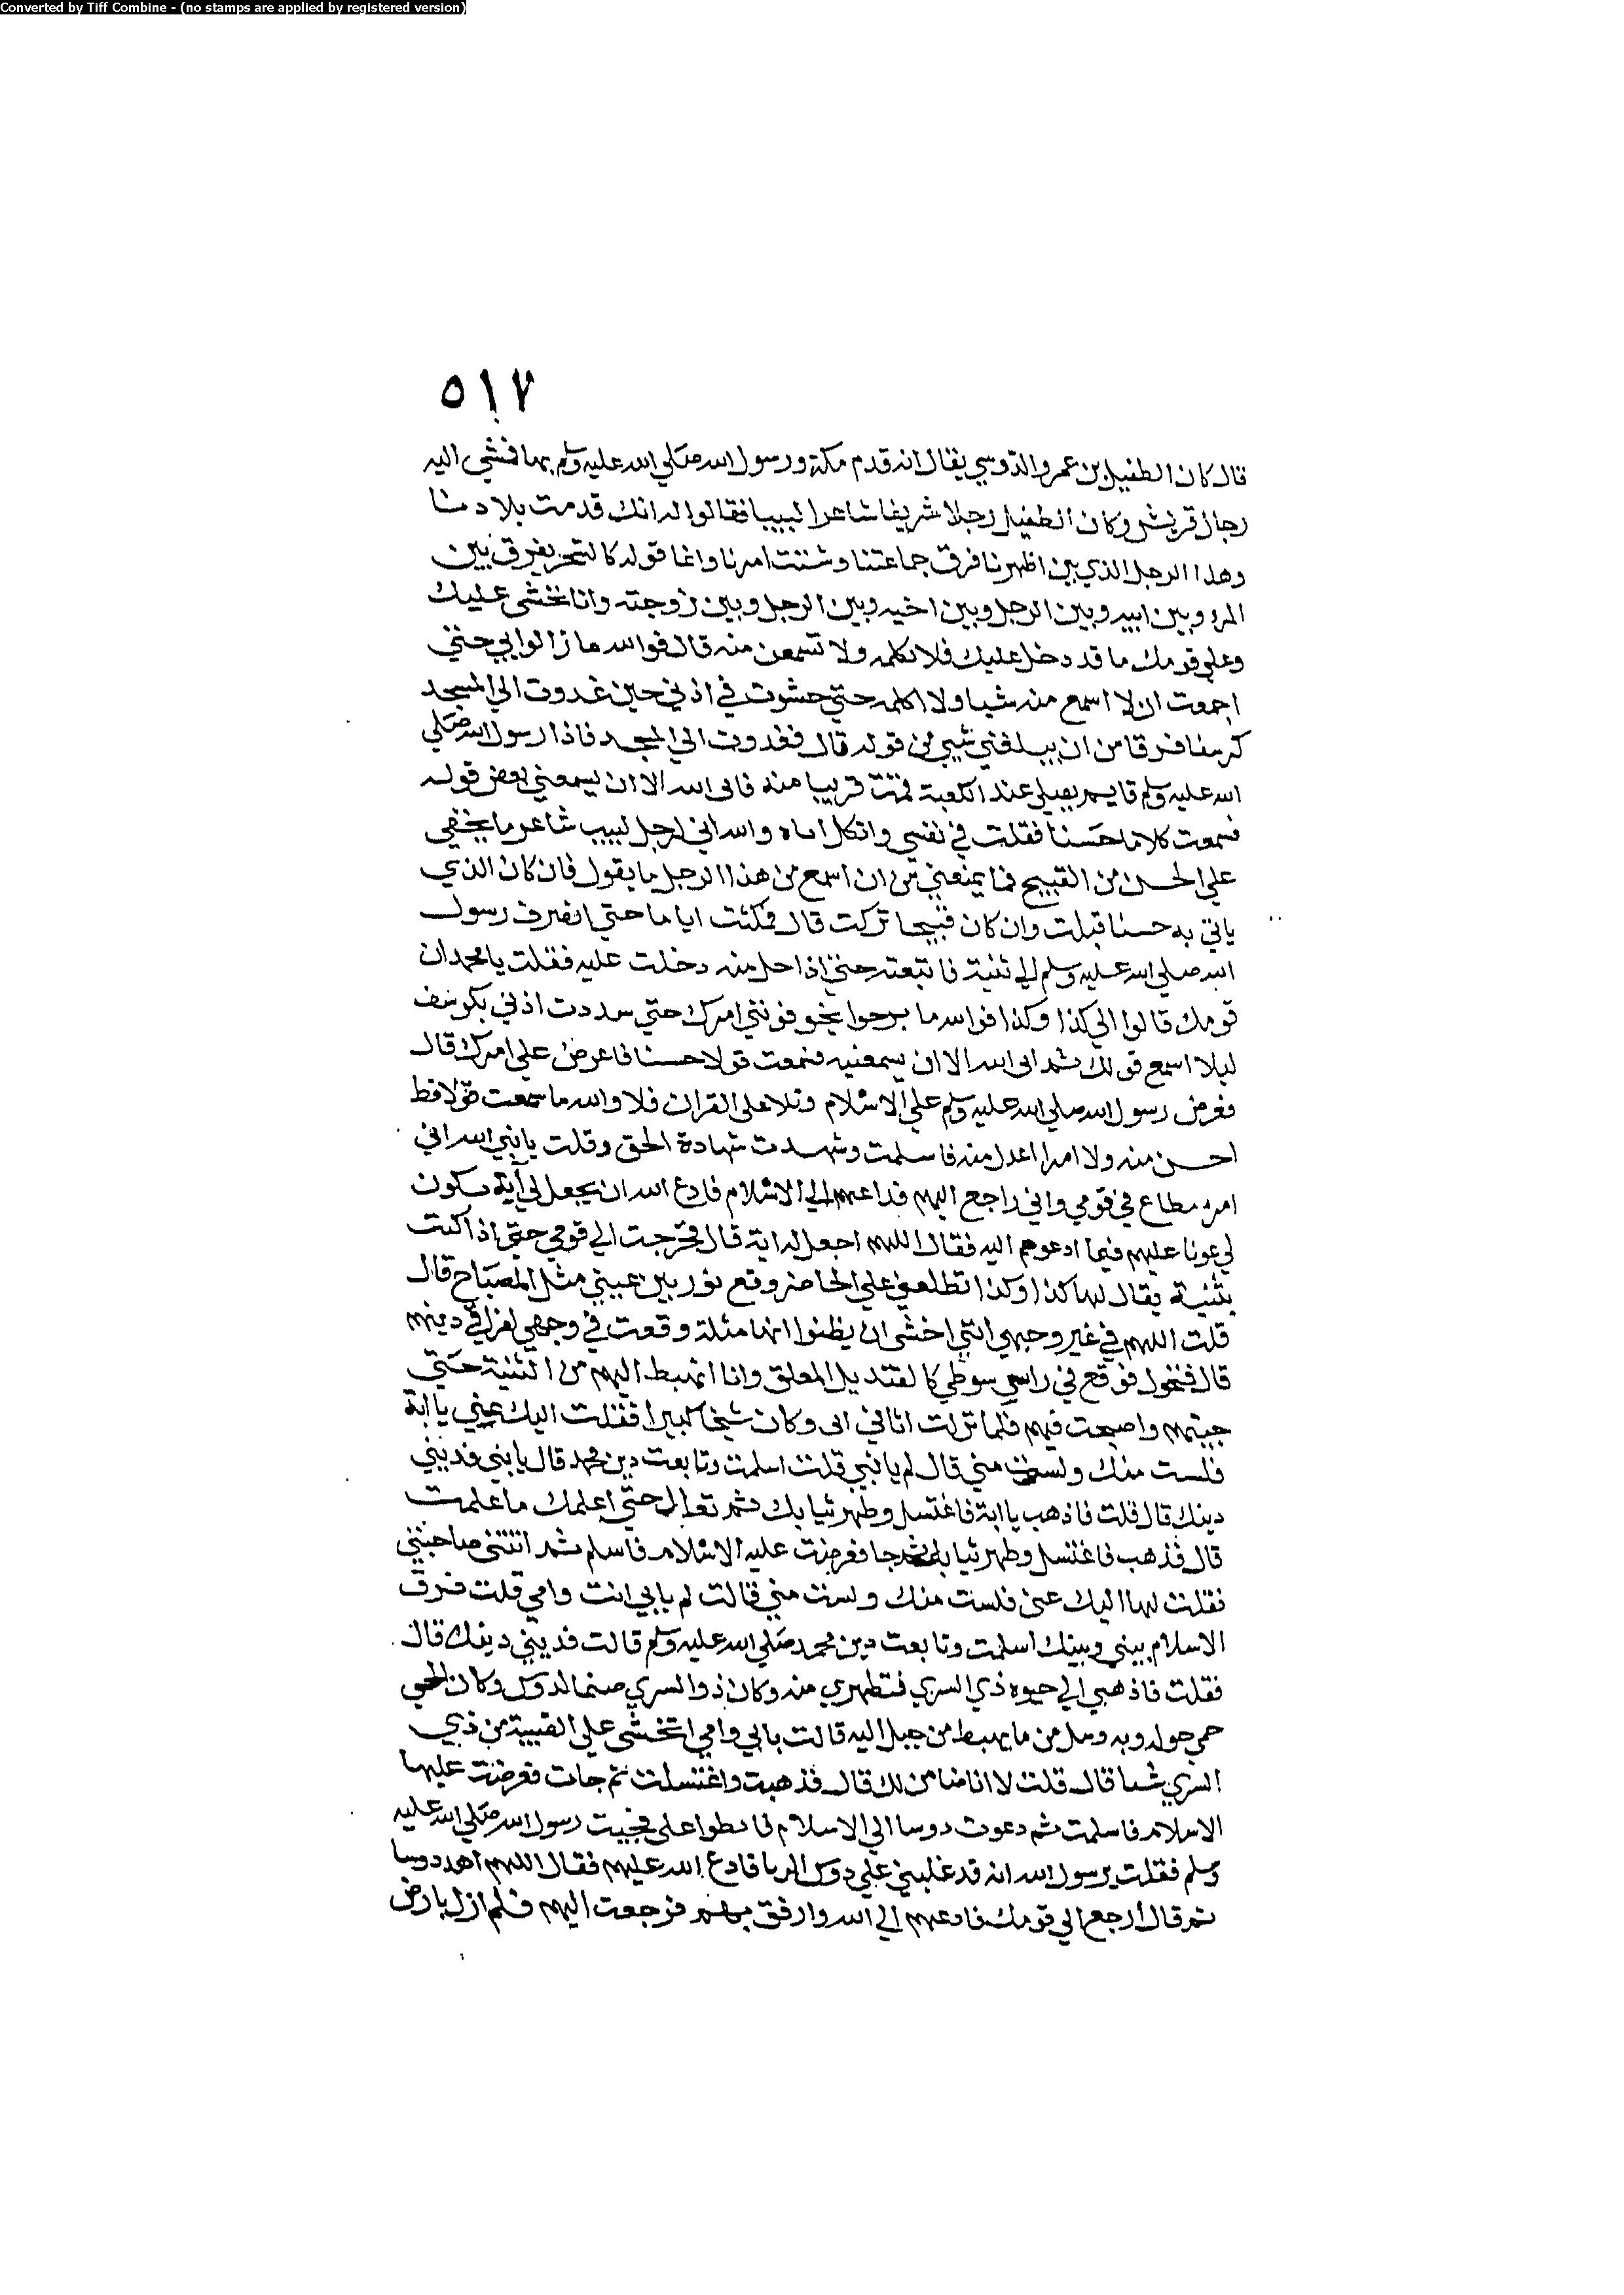 Converted by Tiff Combine - (no stamps are applied by registered version)
٥١٧
قال كان الطفيل بن عمرو الدوسي يقال انه قدم مكة ورسول الله صلي الله عليه وسلم بها فمشي اليه
رجال قريش وكان الطفيل رجلا شريفا شاعرا لبيبا فقالوا له انك قدمت بلادنا
وهذا الرجل الذي بين اظهرنا فرق جماعتنا وشتت امرنا وانما قوله كالسحر يفرق بين
المرء وبين ابيه وبين الرجل وبين اخيه وبين الرجل وبين زوجته وانا نخشى عليك
وعلي قومك ما قد دخل عليك فلا تكلمه ولا تسمعن منه قال فوالله ما زالوا بي حتي
اجمعت ان لا اسمع منه شيا ولا اكلمه حتي حشوت في اذني حين غدوت الي المسجد
كرسفا فرقا من ان يبلغني شي من قوله قال فغدوت الي المسجد فاذا رسول الله صلي
الله عليه وسلم قايم يصلي عند الكعبة فقمت قريبا منه فابى الله الا ان يسمعني بعض قوله
فسمعت كلاما حسنا فقلت في نفسي واثكل اماه والله اني لرجل لبيب شاعر ما يخفي
علي الحسن من القبيح فما يمنعني من ان اسمع من هذا الرجل ما يقول فان كان الذي
ياتي به حسنا قبلت وان كان قبيحا تركت قال فمكثت اياما حتي انصرف رسول
الله صلي الله عليه وسلم الي ثنية فاتبعته حتي اذا دخل منه دخلت عليه فقلت يا محمد ان
قومك قالوا الي كذا وكذا فوالله ما برحوا يخوفونني امرك حتي سددت اذني بكرسف
ليلا اسمع قولك ثم ابى الله الا ان يسمعنيه فسمعت قولا حسنا فاعرض علي امرك قال
فعرض رسول الله صلي الله عليه وسلم علي الاسلام وتلا علي القران فلا والله ما سمعت قولا قط
احسن منه ولا امرا اعدل منه فاسلمت وشهدت شهادة الحق وقلت يا نبي الله اني
امرء مطاع في قومي واني راجع اليهم فداعهم الي الاسلام فادع الله ان يجعل لي آية تكون
لي عونا عليهم فيما ادعوهم اليه فقال اللهم اجعل له اية قال فخرجت الي قومي حتي اذا كنت
بثنية يقال لها كذا وكذا تطلعني علي الحاضر وقع نور بين عيني مثل المصباح قال
قلت اللهم في غير وجهي انني اخشى ان يظنوا انها مثلة وقعت في وجهي لفراقي دينهم
قال فتحول فوقع في راس سوطي كالقنديل المعلق وانا انهبط اليهم من الثنية حتي
جيتهم واصبحت فيهم فلما نزلت اتاني ابى وكان شيخا كبيرا فقلت اليك عني يا ابة
فلست منك ولست مني قال لم يا بني قلت اسلمت وتابعت دين محمد قال يا بني فديني
دينك قال قلت فاذهب يا ابة فاغتسل وطهر ثيابك ثم تعال حتي اعلمك ما علمت
قال فذهب فاغتسل وطهر ثيابه ثم جا فعرضت عليه الاسلام فاسلم ثم اتتني صاحبتي
فقلت لها اليك عني فلست منك ولست مني قالت لم بابي انت وامي قلت فرق
الاسلام بيني وبينك اسلمت وتابعت دين محمد صلي الله عليه وسلم قالت فديني دينك قال
فقلت فاذهبي الي ذي السري فتطهري منه وكان ذو السري صنما لدوس وكان الحمي
حمي حوله وبه وسل من ما يهبط من جبل اليه قالت بابي وامي اتخشى علي الصبية من ذي
السري شيا قال قلت لا انا ضامن لك قال فذهبت واغتسلت ثم جات فعرضت عليها
الاسلام فاسلمت ثم دعوت دوسا الي الاسلام فابطوا علي فجيت رسول الله صلي الله عليه
وسلم فقلت يرسول الله انه قد غلبني علي دوس الربا فادع الله عليهم فقال اللهم اهد دوسا
ثم قال ارجع الي قومك فادعهم الي الله وارفق بهم فرجعت اليهم فلم ازل بارض